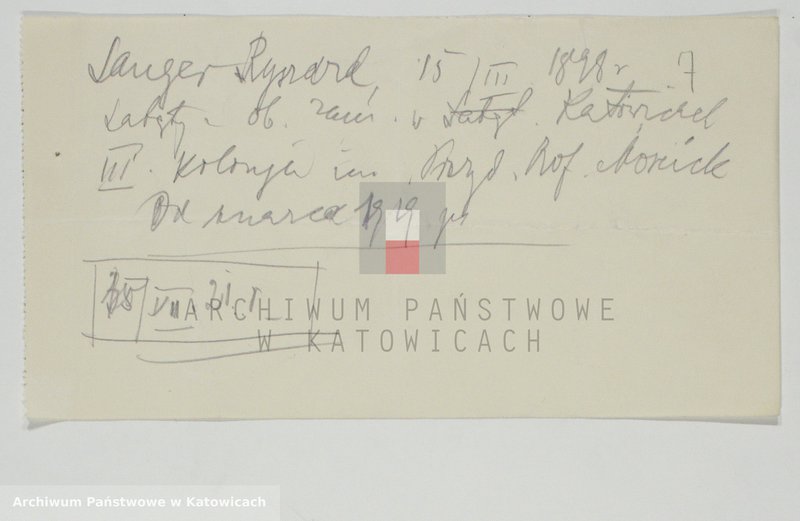 Sanger Ryszard, 15/III 1898 r 7
Łabędy - ob. zam. w Katowicach
III. Kolonja im. Prezyd. Prof. Mościck
Od marca 1919
25/VII 21 r.
ARCHIWUM PAŃSTWOWE
W KATOWICACH
Archiwum Państwowe w Katowicach